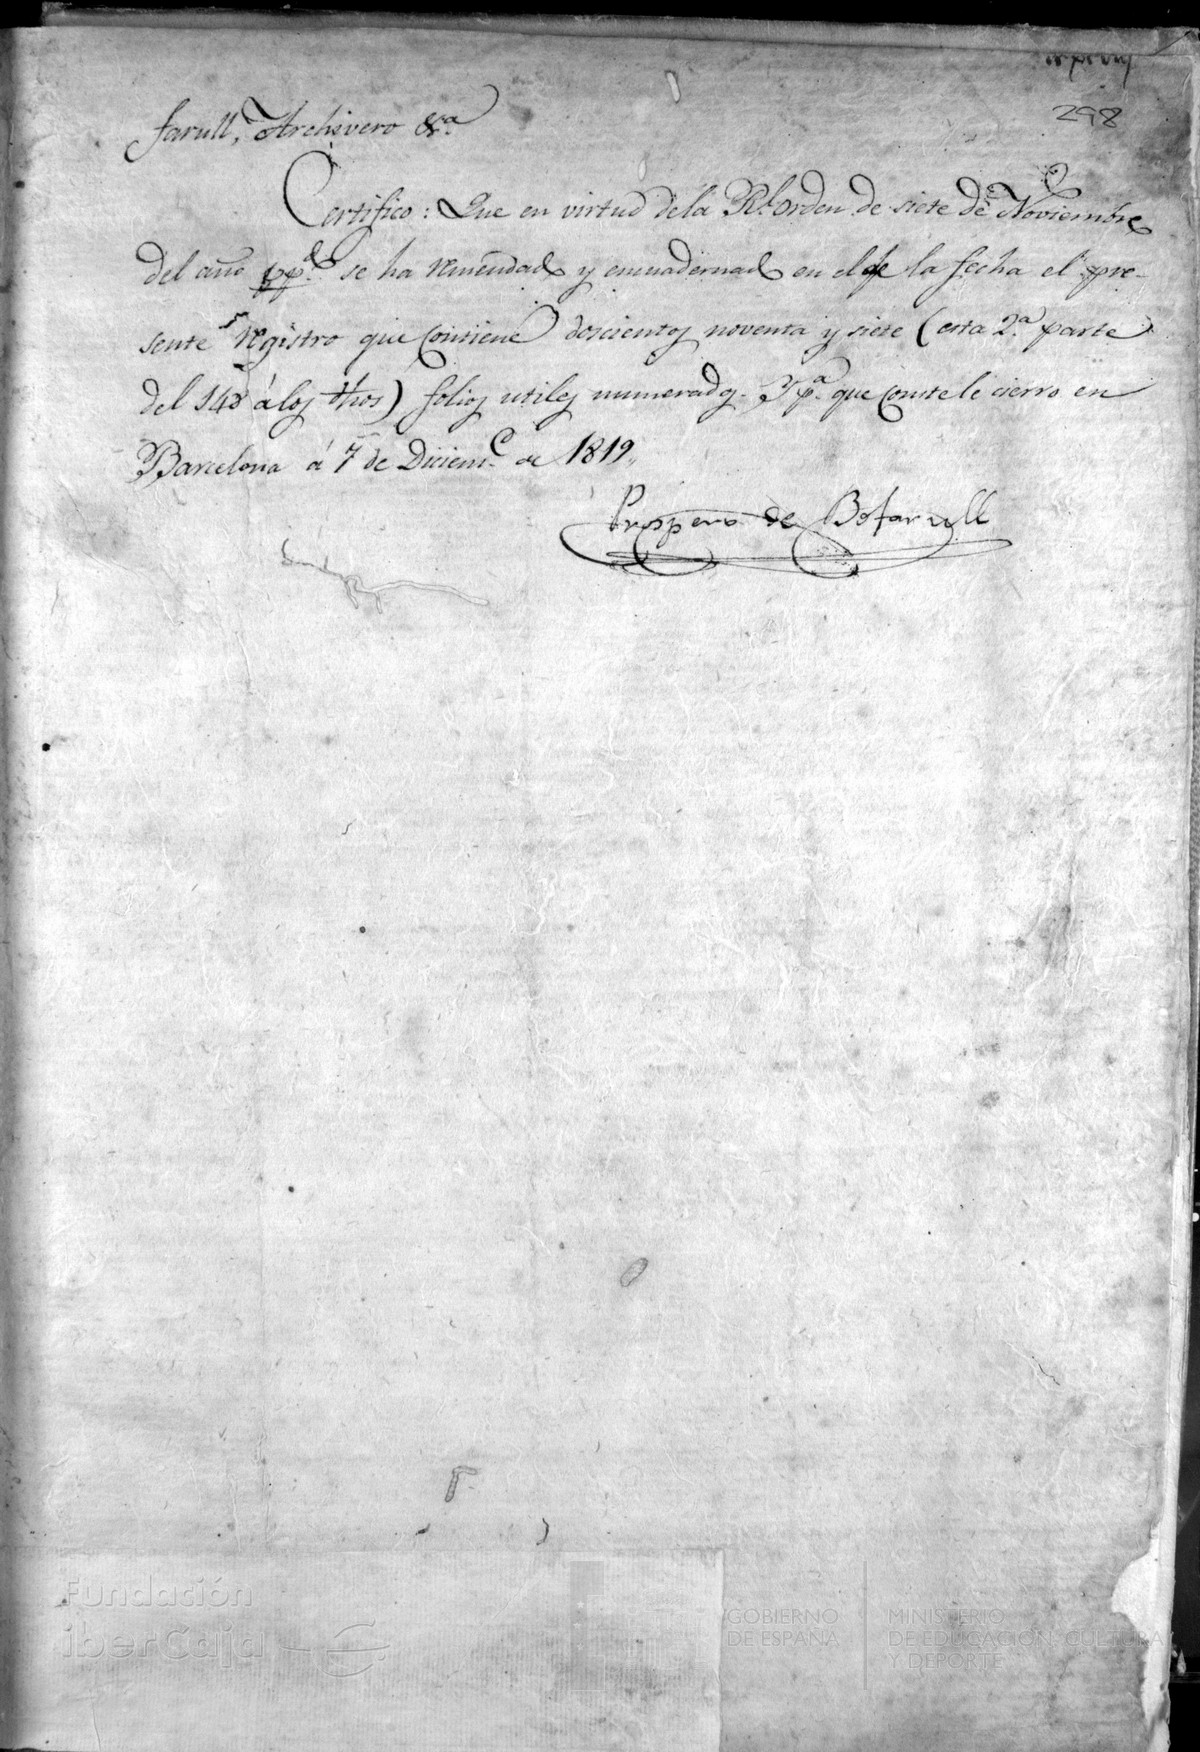 298
farull, Archivero &.ª
Certifico: Que en virtud dela Rl. Orden de siete de Noviembre
del año pp.do se ha remendado y encuadernado en el de la fecha el pre-
sente registro que contiene doscientos noventa y siete (esta 2.ª parte
del 148 á los thos) folios utiles numerados. Y p.ª que conste le cierro en
Barcelona á 7 de Diciem.e de 1819.
Prospero de Bofarull
Fundación
iberCaja
GOBIERNO
DE ESPAÑA
MINISTERIO
DE EDUCACIÓN, CULTURA
Y DEPORTE